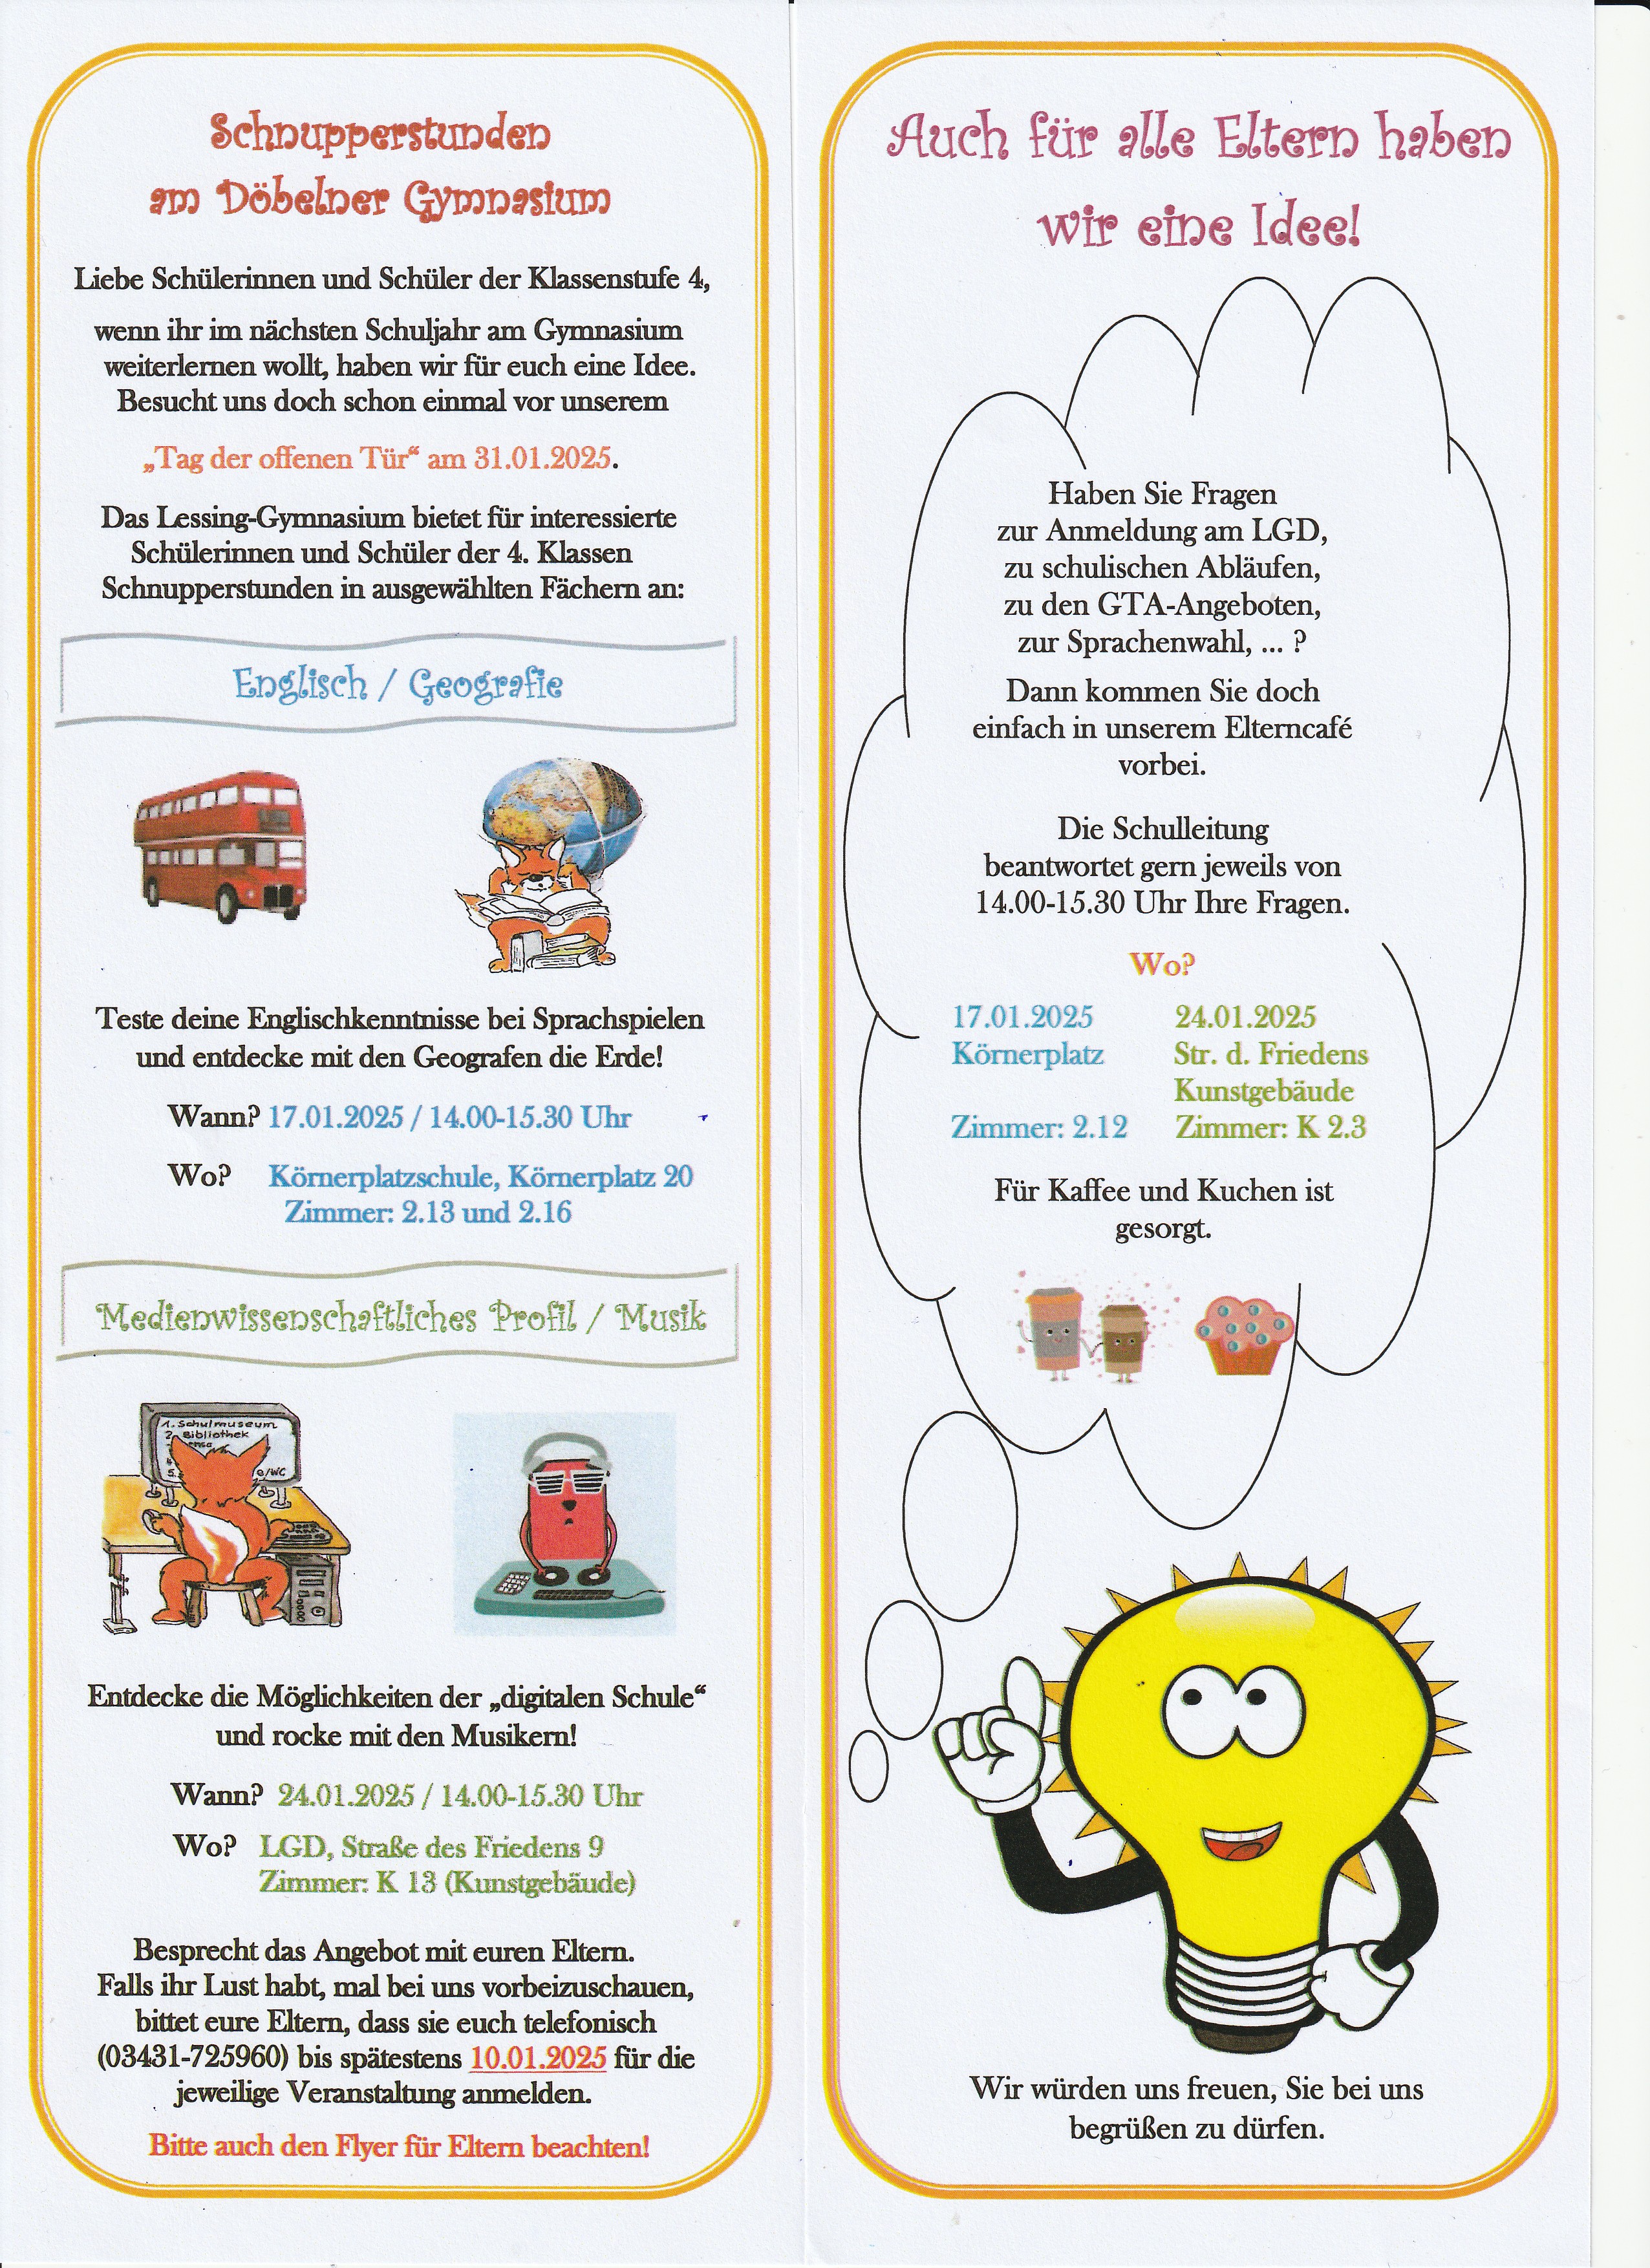 Schnupperstunden
am Döbelner Gymnasium
Liebe Schülerinnen und Schüler der Klassenstufe 4,
wenn ihr im nächsten Schuljahr am Gymnasium
weiterlernen wollt, haben wir für euch eine Idee.
Besucht uns doch schon einmal vor unserem
„Tag der offenen Tür“ am 31.01.2025.
Das Lessing-Gymnasium bietet für interessierte
Schülerinnen und Schüler der 4. Klassen
Schnupperstunden in ausgewählten Fächern an:
Englisch / Geografie
Teste deine Englischkenntnisse bei Sprachspielen
und entdecke mit den Geografen die Erde!
Wann? 17.01.2025 / 14.00-15.30 Uhr
Wo? Körnerplatzschule, Körnerplatz 20
Zimmer: 2.13 und 2.16
Medienwissenschaftliches Profil / Musik
1. Schulmuseum
2. Bibliothek
5.
/WC
Entdecke die Möglichkeiten der „digitalen Schule“
und rocke mit den Musikern!
Wann? 24.01.2025 / 14.00-15.30 Uhr
Wo? LGD, Straße des Friedens 9
Zimmer: K 13 (Kunstgebäude)
Besprecht das Angebot mit euren Eltern.
Falls ihr Lust habt, mal bei uns vorbeizuschauen,
bittet eure Eltern, dass sie euch telefonisch
(03431-725960) bis spätestens 10.01.2025 für die
jeweilige Veranstaltung anmelden.
Bitte auch den Flyer für Eltern beachten!
Auch für alle Eltern haben
wir eine Idee!
Haben Sie Fragen
zur Anmeldung am LGD,
zu schulischen Abläufen,
zu den GTA-Angeboten,
zur Sprachenwahl, ... ?
Dann kommen Sie doch
einfach in unserem Elterncafé
vorbei.
Die Schulleitung
beantwortet gern jeweils von
14.00-15.30 Uhr Ihre Fragen.
Wo?
17.01.2025 24.01.2025
Körnerplatz Str. d. Friedens
Kunstgebäude
Zimmer: 2.12 Zimmer: K 2.3
Für Kaffee und Kuchen ist
gesorgt.
Wir würden uns freuen, Sie bei uns
begrüßen zu dürfen.